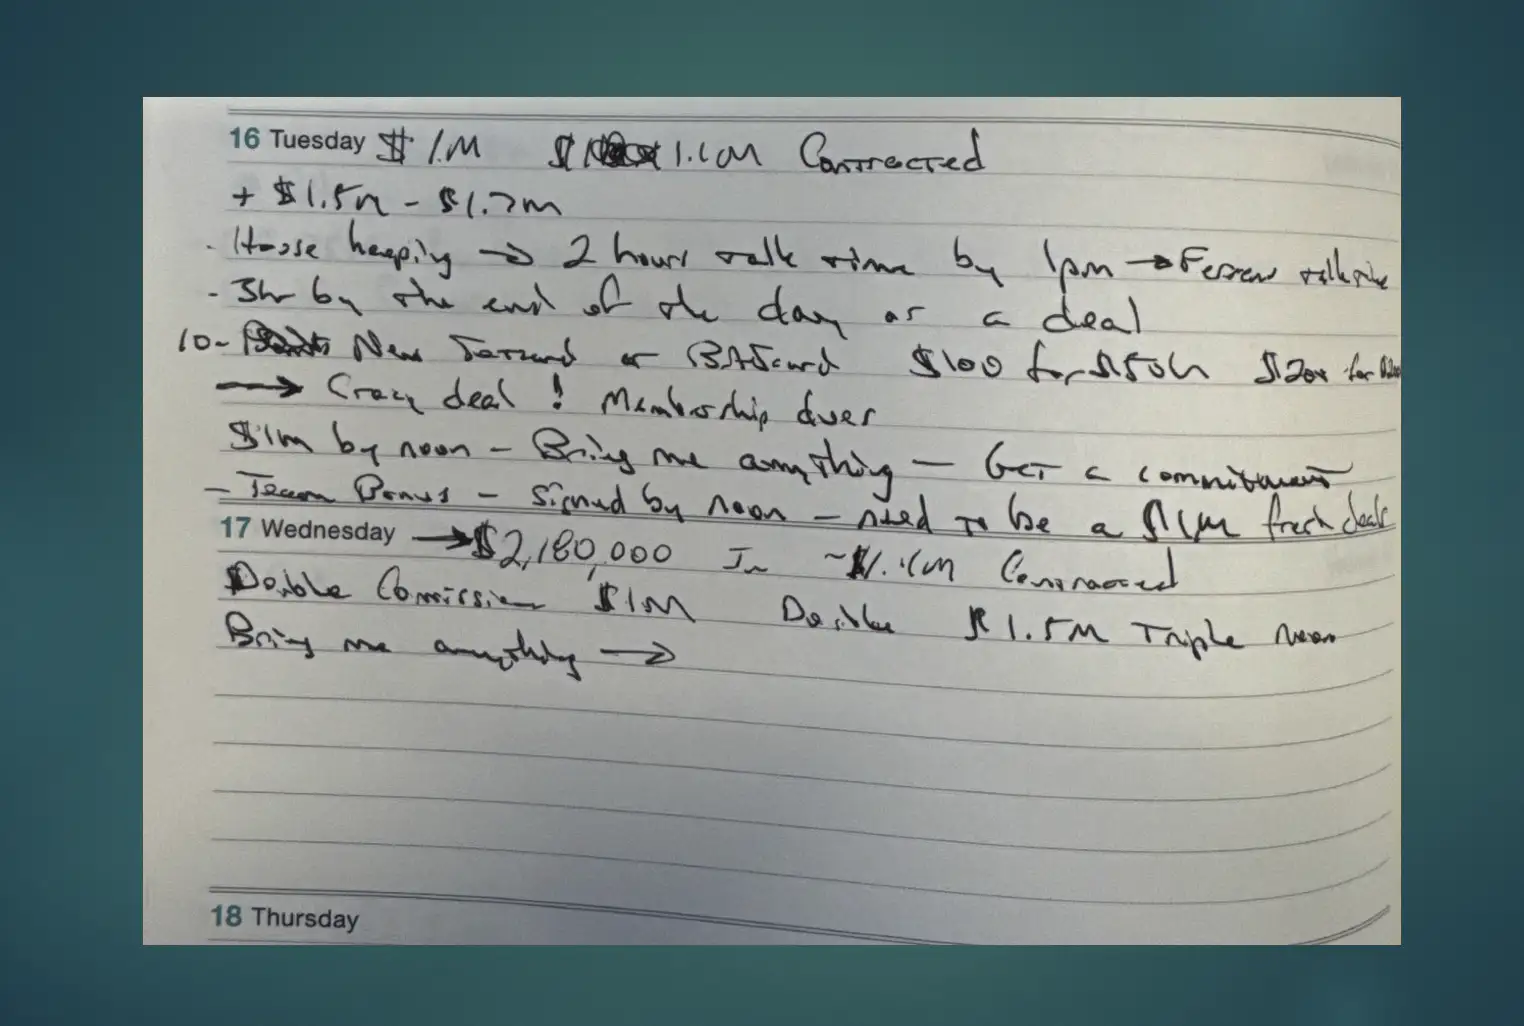 16 Tuesday $1M $ 1.1M Contracted
+ $1.5m - $1.7m
- House keeping → 2 hours talk time by 1pm → talk time
- 3hr by the end of the day or a deal
10- New or $100 for $50k $200 for
→ Crazy deal! Membership dues
$1m by noon - Bring me anything - Get a commitment
- Team Bonus - signed by noon - need to be a $1M fresh deals
17 Wednesday → $2,180,000 In ~ Contracted
Double Comission $1M Double $1.5M Triple Noon
Bring me anything →
18 Thursday